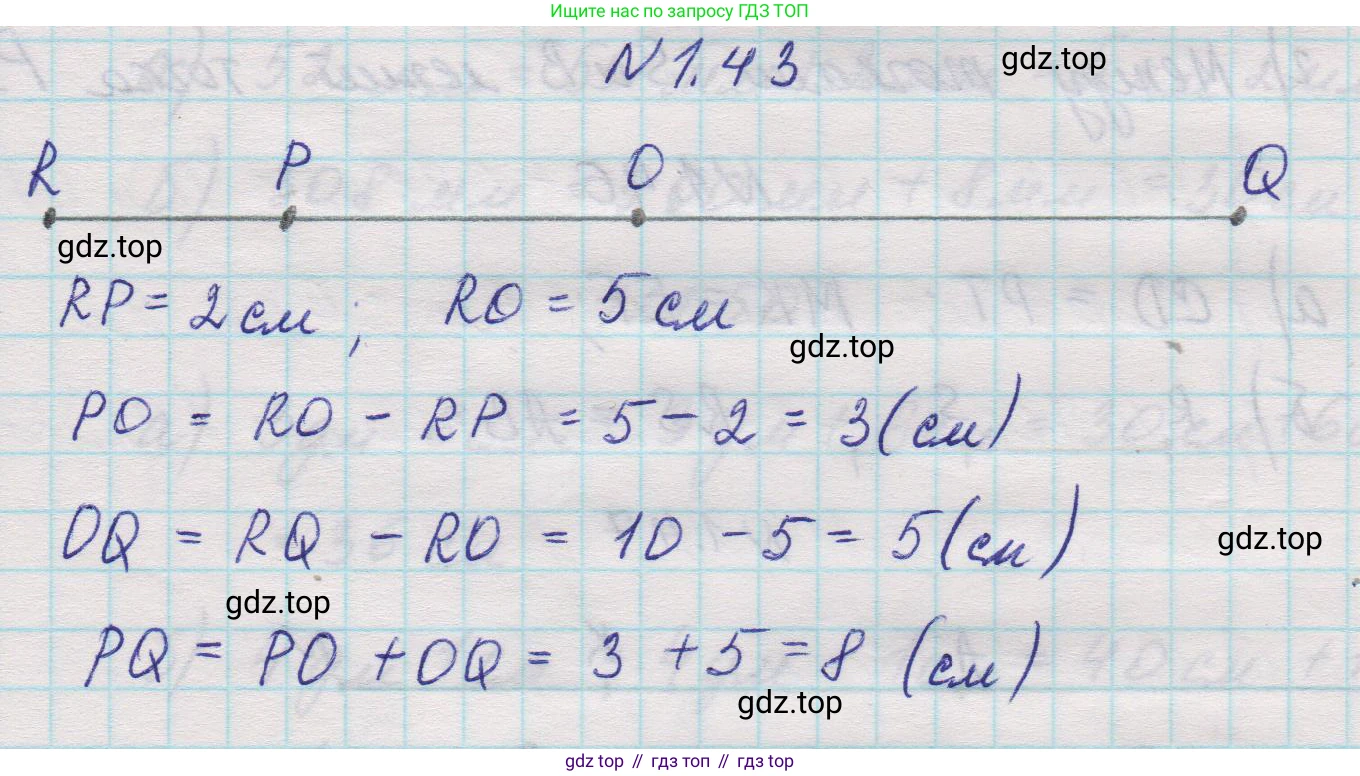 Ищите нас по запросу ГДЗ ТОП
N 1.43
gdz.top
R P O Q
gdz.top
RP = 2 см ; RO = 5 см
gdz.top
PO = RO - RP = 5 - 2 = 3 (см)
OQ = RQ - RO = 10 - 5 = 5 (см)
gdz.top
gdz.top
PQ = PO + OQ = 3 + 5 = 8 (см)
gdz.top
gdz top // гдз топ // гдз top